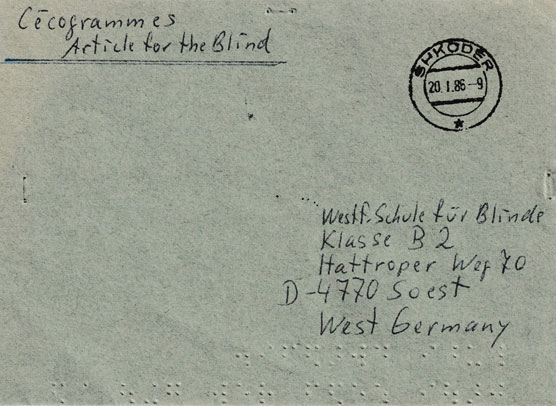 Cécogrammes
Article for the Blind
SHKODER
20.1.86-9
Westf. Schule für Blinde
Klasse B 2
Hattroper Weg 70
D-4770 Soest
West Germany